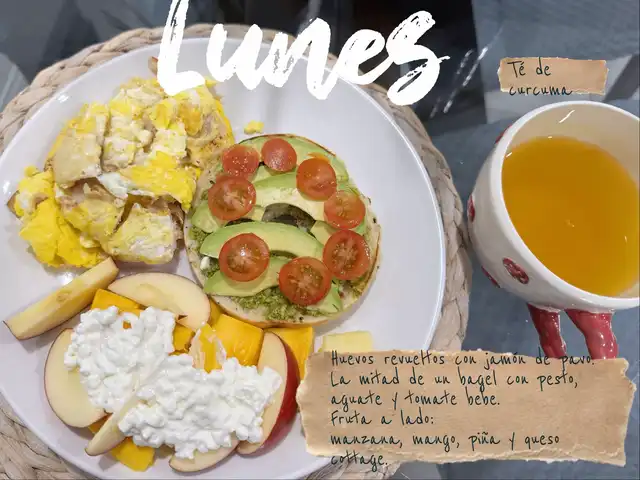 Lunes
Té de
curcuma
Huevos revueltos con jamón de pavo.
La mitad de un bagel con pesto,
aguate y tomate bebe.
Fruta a lado:
manzana, mango, piña y queso
cottage.